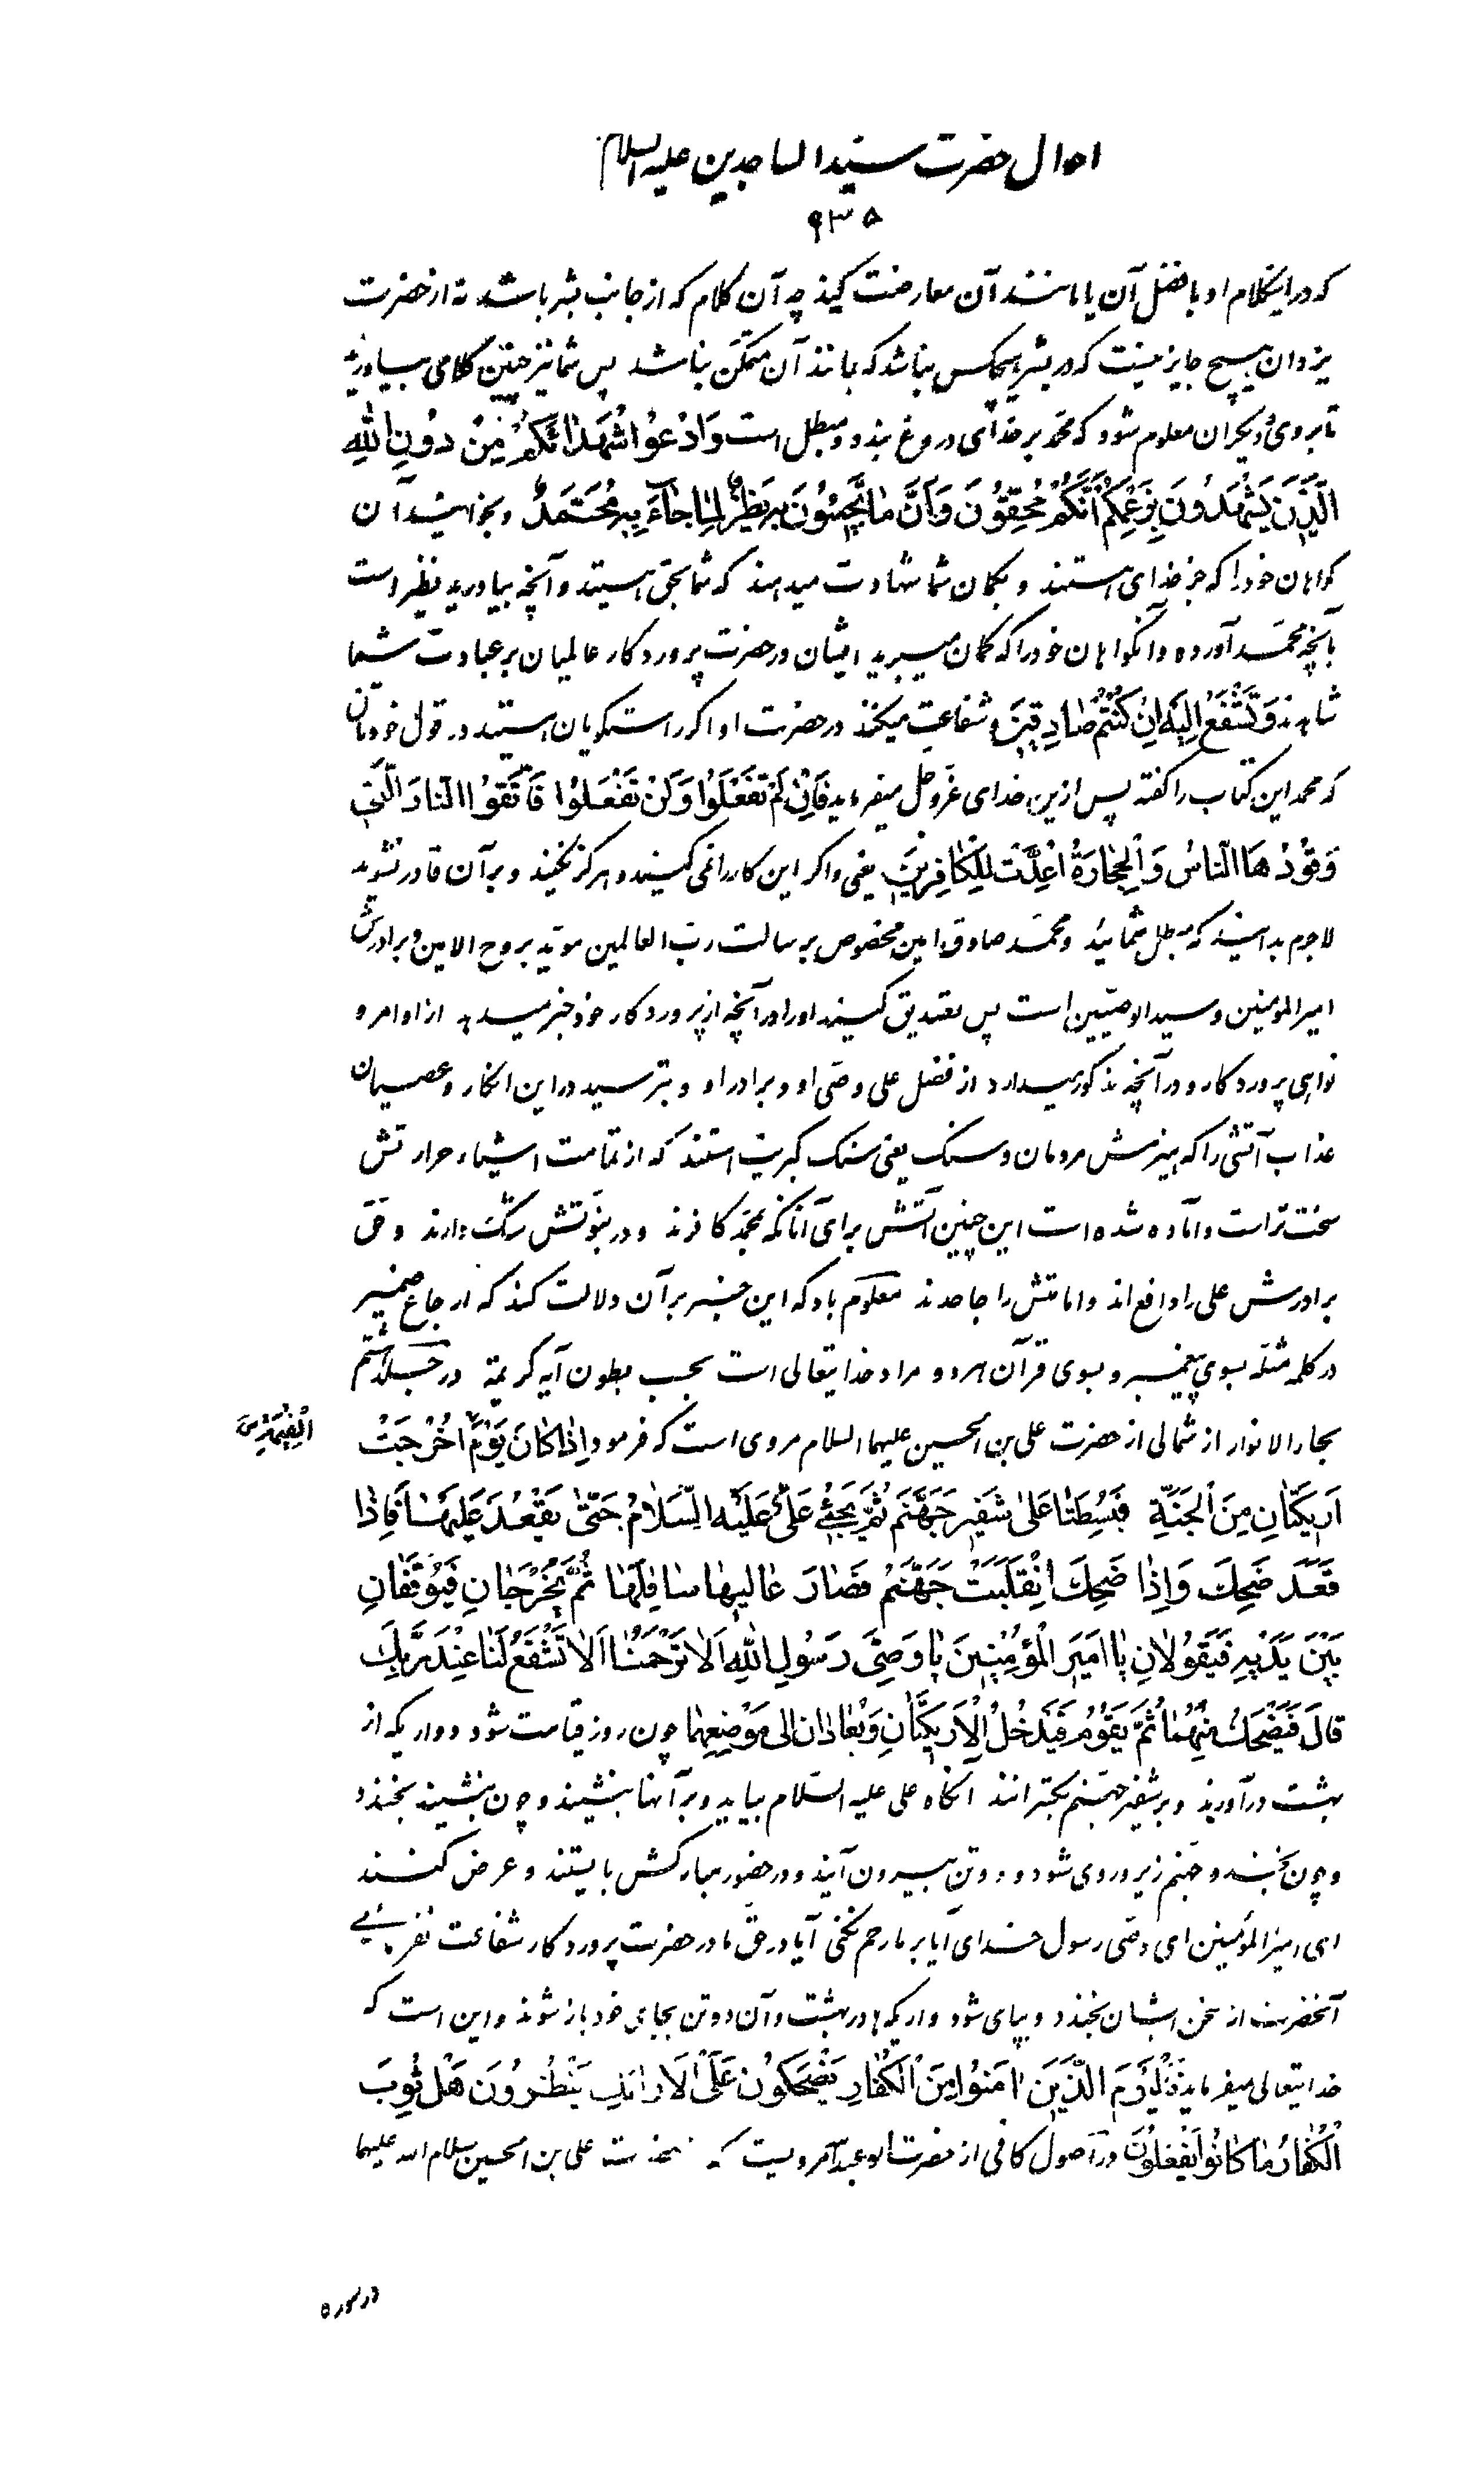 احوال حضرت سید الساجدین علیه السلام
۹۳۵
که در اینکلام او بافضل آن یا مانند آن معارضت کنید چه آن کلام که از جانب بشر باشد نه از حضرت
یزدان هیچ جایز نیست که در بشر هیچکس نباشد که بمانند آن متمکن نباشد پس شما نیز چنین کلامی بیاورید
تا بر وی و دیگران معلوم شود که محمد بر خدای دروغ بندد و مبطل است وَادْعُوا شُهَدٰائَكُمْ مِنْ دُونِ اللّٰهِ
الَّذِينَ يَشْهَدُونَ بِزَعْمِكُمْ أَنَّكُمْ مُحِقُّونَ وَأَنَّ مٰا تَجِيئُونَ بِهِ نَظِيرٌ لِمٰا جٰاءَ بِهِ مُحَمَّدٌ و بخوانید آن
گواهان خود را که جز خدای هستند و بگمان شما شهادت میدهند که شما بحق هستید و آنچه بیاورید نظیر است
بآنچه محمد آورده و آنگواهان خود را که گمان میبرید ایشان در حضرت پروردگار عالمیان بر عبادت شما
شاهدند وَتَشْفَعُ إِلَيْهِ إِنْ كُنْتُمْ صٰادِقِينَ و شفاعت میکنند در حضرت او اگر راستگویان هستید در قول خودتان
که محمد این کتاب را گفته پس ازین خدای عزوجل میفرماید فَإِنْ لَمْ تَفْعَلُوا وَلَنْ تَفْعَلُوا فَاتَّقُوا النّٰارَ الَّتِي
وَقُودُهَا النّٰاسُ وَالْحِجٰارَةُ أُعِدَّتْ لِلْكٰافِرِينَ یعنی و اگر این کار را نمی کنید و هرگز نکنید و بر آن قادر نشوید
لاجرم بدانید که مبطل شمائید و محمد صادق امین مخصوص برسالت رب العالمین مؤید بروح الامین و برادرش
امیرالمؤمنین و سید الوصیین است پس تصدیق کنید او را در آنچه از پروردگار خود خبر میدهد از اوامر و
نواهی پروردگار و در آنچه مذکور میدارد از فضل علی وصی او و برادر او و بترسید در این انکار و عصیان
عذاب آتشی را که هیزمش مردمان و سنگ یعنی سنگ کبریت استند که از تمامت اشیاء حرارتش
سخت تر است و آماده شده است این چنین آتش برای آنانکه بمحمد کافرند و در نبوتش بشک دارند و حق
برادرش علی را دافع اند و امامتش را جاحدند معلوم باد که این خبر بر آن دلالت کند که ارجاع ضمیر
در کلمه مثله بسوی پیغمبر و بسوی قرآن هر دو مراد خدایتعالی است بحسب بطون آیه کریمة در جلد هشتم
بحار الانوار از ثمالی از حضرت علی بن الحسین علیهما السلام مروی است که فرمود إِذٰا كٰانَ يَوْمُ الْقِيٰمَةِ أُخْرِجَتْ
أَرِيكَتٰانِ مِنَ الْجَنَّةِ فَبُسِطَتٰا عَلٰى شَفِيرِ جَهَنَّمَ ثُمَّ يَجِيءُ عَلِيٌّ عَلَيْهِ السَّلٰامُ حَتّٰى يَقْعُدَ عَلَيْهِمٰا فَإِذٰا
قَعَدَ ضَحِكَ وَإِذٰا ضَحِكَ انْقَلَبَتْ جَهَنَّمُ فَصٰارَ عٰالِيهٰا سٰافِلَهٰا ثُمَّ يُخْرَجٰانِ فَيُوقَفٰانِ
بَيْنَ يَدَيْهِ فَيَقُولٰانِ يٰا أَمِيرَ الْمُؤْمِنِينَ يٰا وَصِيَّ رَسُولِ اللّٰهِ أَلٰا تَرْحَمُنٰا أَلٰا تَشْفَعُ لَنٰا عِنْدَ رَبِّكَ
قٰالَ فَيَضْحَكُ مِنْهُمٰا ثُمَّ يَقُومُ فَيَدْخُلُ الْأَرِيكَتٰانِ وَيُعٰادٰانِ إِلٰى مَوْضِعِهِمٰا چون روز قیامت شود دو اریکه از
بهشت در آورند و بر شفیر جهنم بگسترانند آنگاه علی علیه السلام بیاید و بر آنها بنشیند و چون بنشیند بخندد
و چون بخندد جهنم زیر و روی شود و دو تن بیرون آیند و در حضور مبارکش بایستند و عرض کنند
ای امیرالمؤمنین ای وصی رسول خدای آیا بر ما رحم نکنی آیا در حق ما در حضرت پروردگار شفاعت نفرمائی
آنحضرت از سخن ایشان بخندد و بپای شود و اریکه ها در بهشت و آن دو تن بجای خود باز شوند و این است که
خدایتعالی میفرماید فَالْيَوْمَ الَّذِينَ اٰمَنُوا مِنَ الْكُفّٰارِ يَضْحَكُونَ عَلَى الْأَرٰائِكِ يَنْظُرُونَ هَلْ ثُوِّبَ
الْكُفّٰارُ مٰا كٰانُوا يَفْعَلُونَ در اصول کافی از حضرت ابو عبدالله مرویست که علی بن الحسین سلام الله علیهما
در سوره